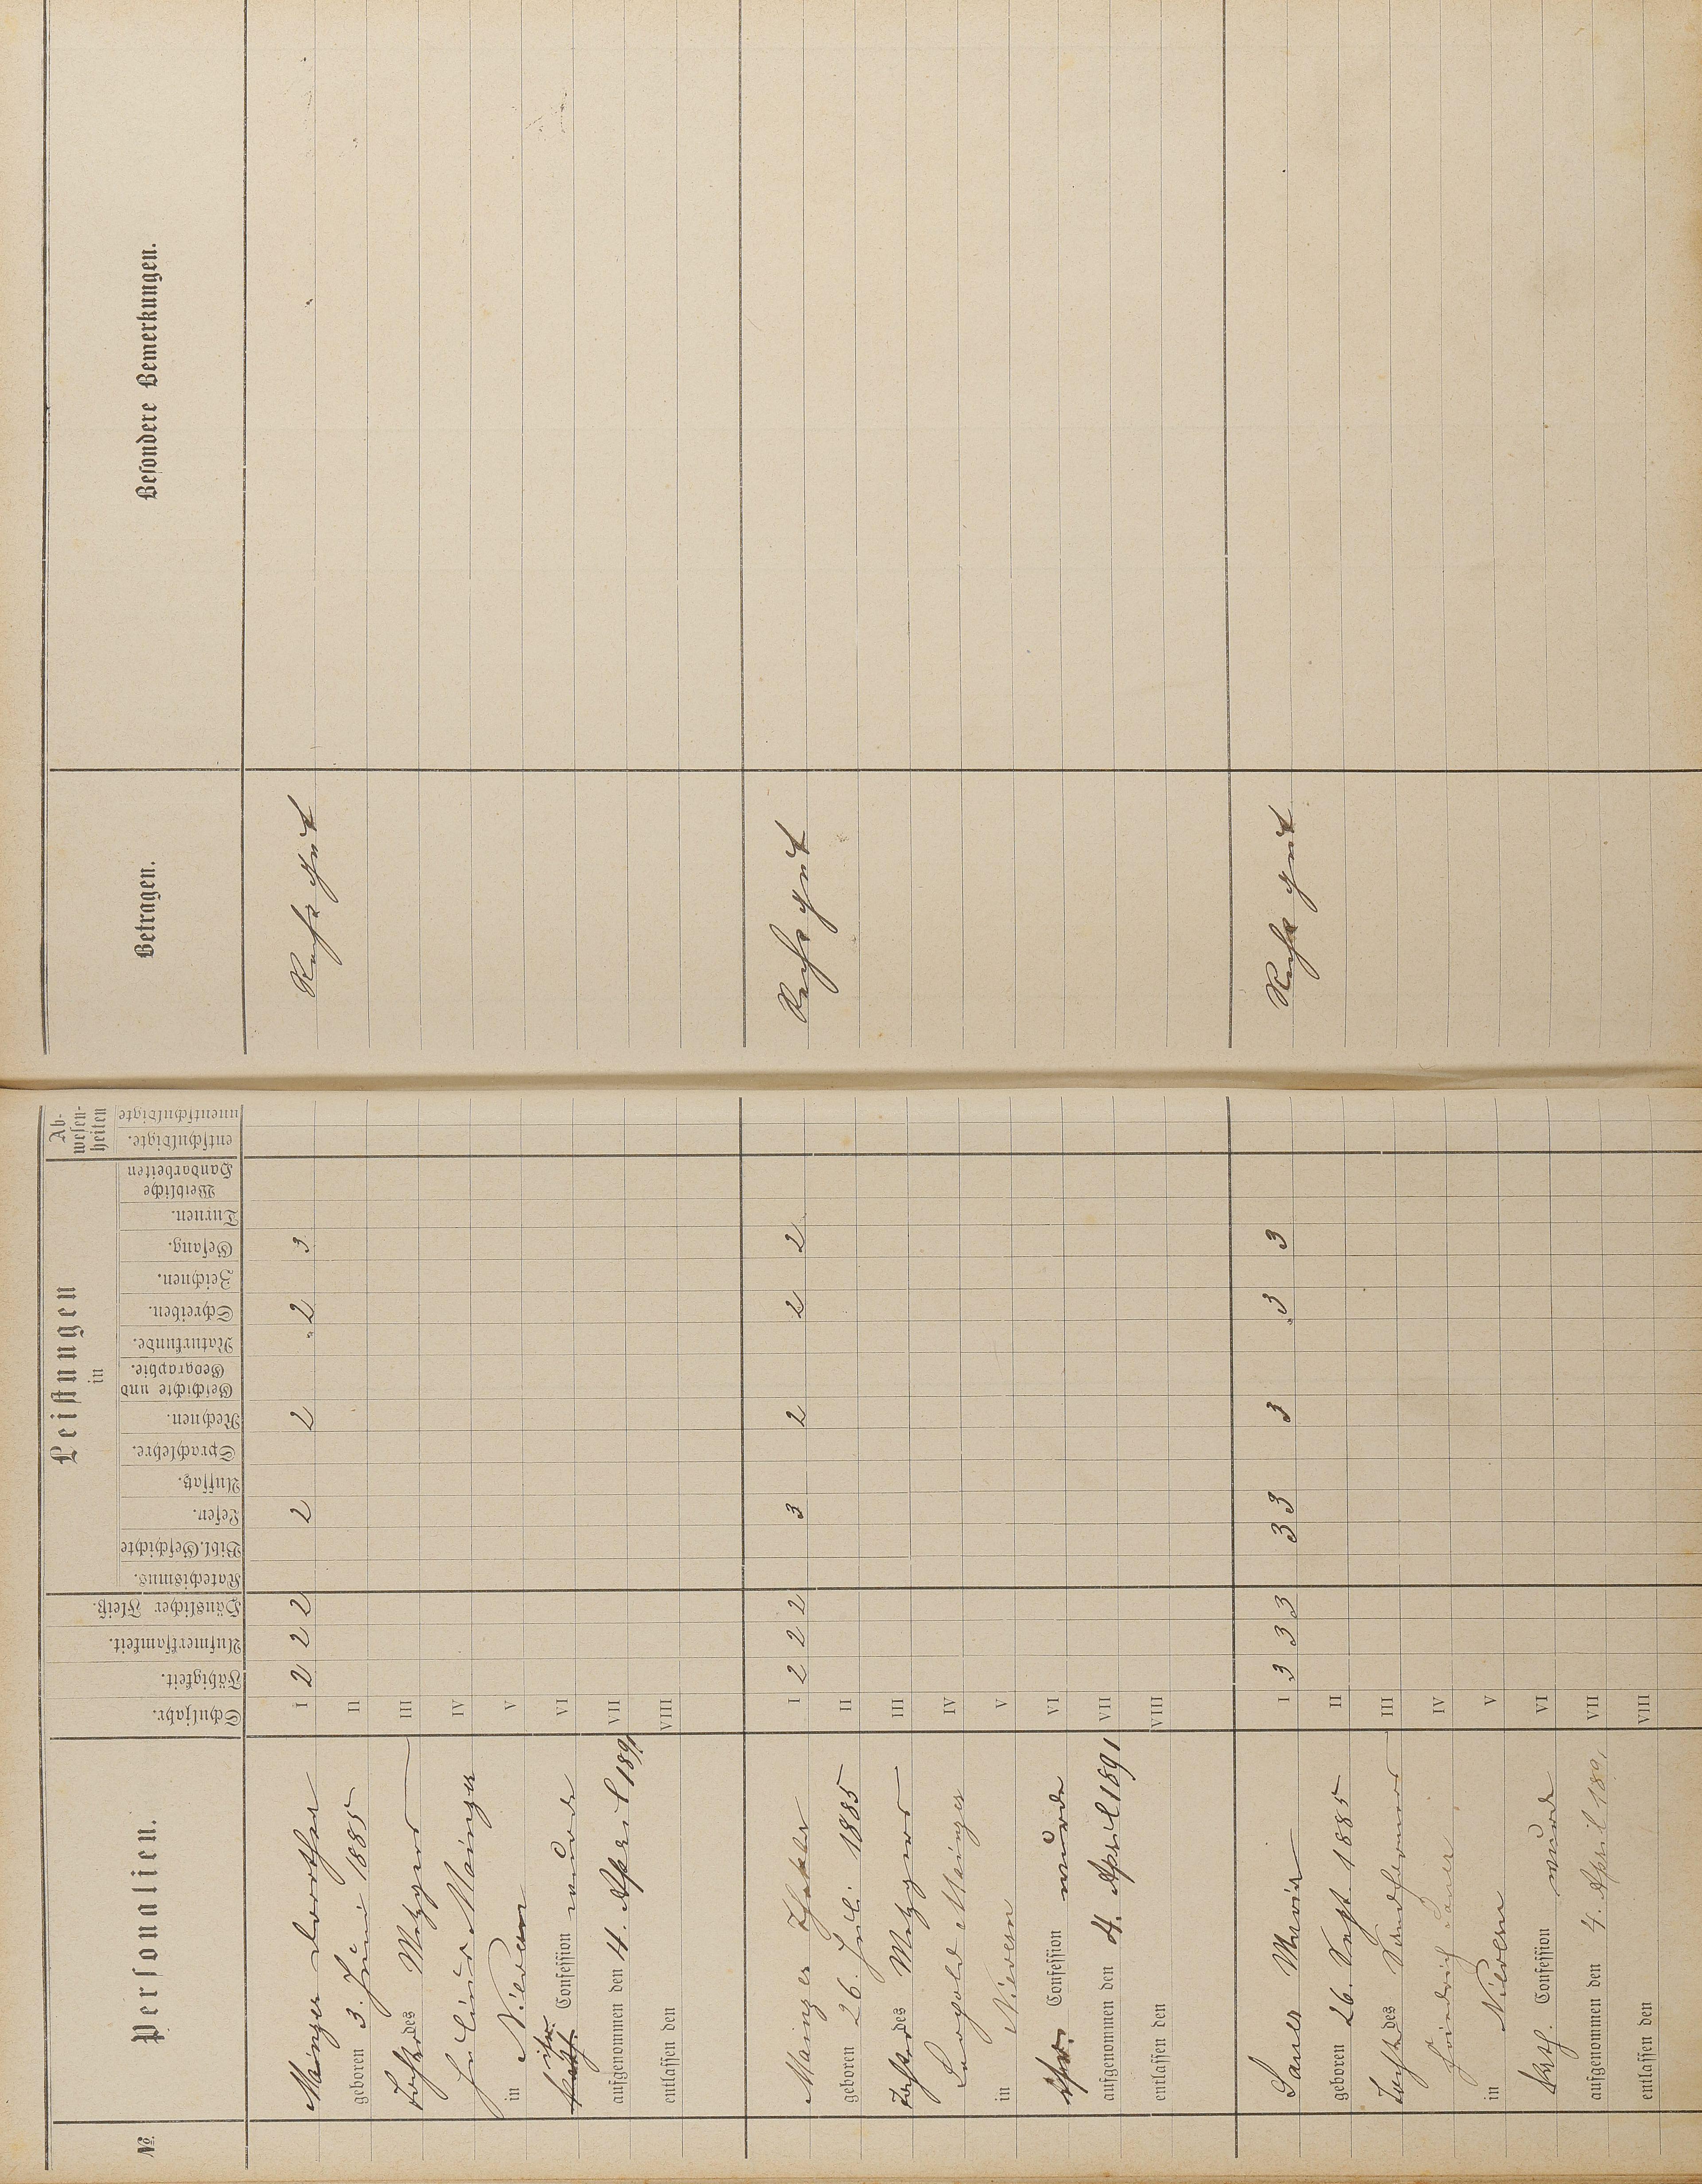 №
Personalien.
Schuljahr.
Fähigkeit.
Aufmerksamkeit.
Häuslicher Fleiß.
Leistungen
in
Katechismus.
Bibl. Geschichte
Lesen.
Aufsatz.
Sprachlehre.
Rechnen.
Geschichte und
Geographie.
Naturkunde.
Schreiben.
Zeichnen.
Gesang.
Turnen.
Weibliche
Handarbeiten
Ab-
wesen-
heiten
entschuldigte.
unentschuldigte
Betragen.
Besondere Bemerkungen.
Mainzer Dorothea I 2 2 2 2 2 2 3 Recht gut
geboren 3. Juni 1885 II
Tochter des Metzgers III
Julius Mainzer IV
in Nidern V
isr. Confession wurde VI
aufgenommen den 4. April 1891 VII
entlassen den VIII
Mainzer Thekla I 2 2 2 3 2 2 2 Recht gut
geboren 26. Juli 1885 II
Tochter des Metzgers III
Leopold Mainzer IV
in Nidern V
isr. Confession wurde VI
aufgenommen den 4. April 1891 VII
entlassen den VIII
Sauer Maria I 3 3 3 3 3 3 3 3 Recht gut
geboren 26. Sept 1885 II
Tochter des III
Friedrich Sauer IV
in Nidern V
kath. Confession wurde VI
aufgenommen den 4. April 189 VII
entlassen den VIII